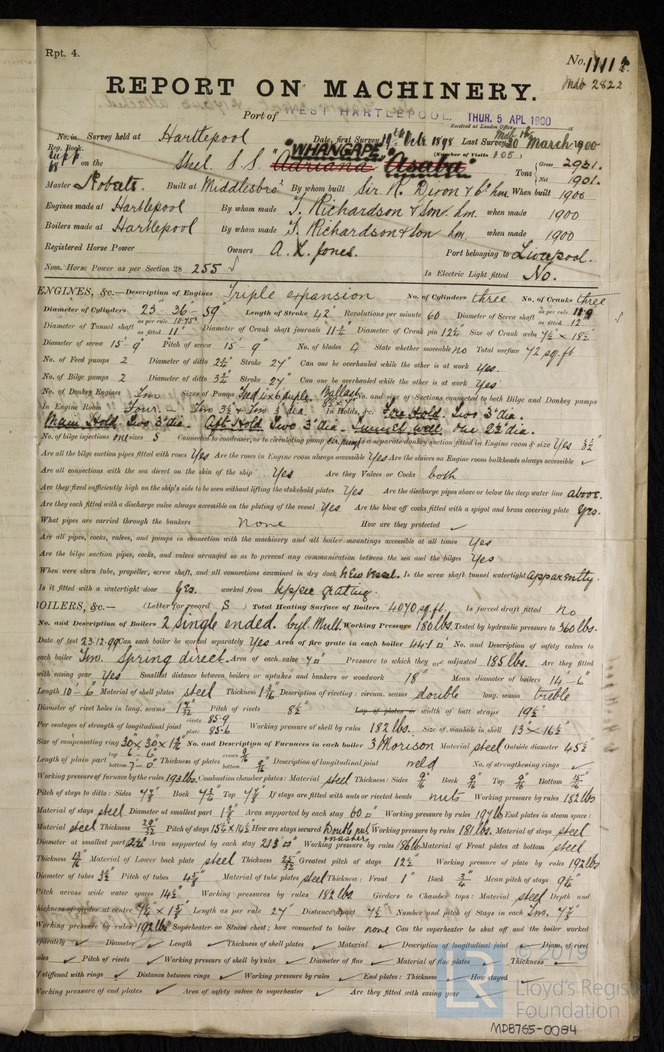 Rpt. 4.
No. 11112.
Mdb 2822
REPORT ON MACHINERY.
Port of WEST HARTLEPOOL
THUR. 5 APL 1900
Received at London Office
No. in Survey held at Hartlepool Date, first Survey 19th Oct 1898 Last Survey 30 March 1900
Reg. Book. (Number of Visits 105)
Supp on the Steel S.S. "Adriana" "WHANGAPE" Asaba Tons Gross 2931. Net 1901.
Master Roberts. Built at Middlesbro' By whom built Sir R. Dixon & Co Lim. When built 1900
Engines made at Hartlepool By whom made T. Richardson & Son. Lim. when made 1900
Boilers made at Hartlepool By whom made T. Richardson & Son Lim. when made 1900
Registered Horse Power Owners A. L. Jones. Port belonging to Liverpool.
Nom. Horse Power as per Section 28 255 Is Electric Light fitted No.
ENGINES, &c.— Description of Engines Triple expansion No. of Cylinders three No. of Cranks three
Diameter of Cylinders 23" 36" 59" Length of Stroke 42" Revolutions per minute 60 Diameter of Screw shaft as per rule as fitted 12"
Diameter of Tunnel shaft as per rule 10.75" as fitted 11" Diameter of Crank shaft journals 11½ Diameter of Crank pin 12¼ Size of Crank webs 7½ × 18½
Diameter of screw 15'-9" Pitch of screw 15'-9" No. of blades 4 State whether moveable no Total surface 72 sq. ft.
No. of Feed pumps 2 Diameter of ditto 2¾" Stroke 27" Can one be overhauled while the other is at work yes.
No. of Bilge pumps 2 Diameter of ditto 3¾" Stroke 27" Can one be overhauled while the other is at work Yes
No. of Donkey Engines Two Sizes of Pumps Feed 4 × 6 duplex. Ballast No. and size of Suctions connected to both Bilge and Donkey pumps
In Engine Room Four.— Two 3½ & Two 3" dia. In Holds, &c. Fore Hold. Two 3" dia.
Main Hold Two 3" dia. Aft Hold Two 3" dia. Tunnel well One 2½ dia.
No. of bilge injections one sizes 5 Connected to condenser, or to circulating pump cir. pump Is a separate donkey suction fitted in Engine room & size Yes 3½"
Are all the bilge suction pipes fitted with roses Yes Are the roses in Engine room always accessible Yes Are the sluices on Engine room bulkheads always accessible ✓
Are all connections with the sea direct on the skin of the ship Yes Are they Valves or Cocks both
Are they fixed sufficiently high on the ship's side to be seen without lifting the stokehold plates Yes Are the discharge pipes above or below the deep water line above.
Are they each fitted with a discharge valve always accessible on the plating of the vessel Yes Are the blow off cocks fitted with a spigot and brass covering plate Yes.
What pipes are carried through the bunkers none How are they protected ✓
Are all pipes, cocks, valves, and pumps in connection with the machinery and all boiler mountings accessible at all times Yes
Are the bilge suction pipes, cocks, and valves arranged so as to prevent any communication between the sea and the bilges Yes
When were stern tube, propeller, screw shaft, and all connections examined in dry dock New Vessel. Is the screw shaft tunnel watertight apparently.
Is it fitted with a watertight door Yes. worked from Upper Grating.
BOILERS, &c.— (Letter for record S) Total Heating Surface of Boilers 4070 sq. ft. Is forced draft fitted no
No. and Description of Boilers 2 Single ended. Cyl. Mult. Working Pressure 180 lbs. Tested by hydraulic pressure to 360 lbs.
Date of test 23.12.99 Can each boiler be worked separately Yes Area of fire grate in each boiler No. and Description of safety valves to
each boiler Two. Spring direct. Area of each valve Pressure to which they are adjusted 185 lbs. Are they fitted
with easing gear Yes Smallest distance between boilers or uptakes and bunkers or woodwork 18" Mean diameter of boilers 14'-6"
Length 10'-6" Material of shell plates steel Thickness Description of riveting: circum. seams double long. seams treble
Diameter of rivet holes in long. seams Pitch of rivets 8½" Lap of plates or width of butt straps 19½"
Per centages of strength of longitudinal joint rivets 85.9 plate 85.6 Working pressure of shell by rules 182 lbs. Size of manhole in shell 13" × 16½"
Size of compensating ring 30" × 30" No. and Description of Furnaces in each boiler 3 Morison Material steel Outside diameter 45¼"
Length of plain part top 6'-6" bottom 7'-0" Thickness of plates crown bottom Description of longitudinal joint weld No. of strengthening rings ✓
Working pressure of furnace by the rules 193 lbs. Combustion chamber plates: Material steel Thickness: Sides Back Top Bottom
Pitch of stays to ditto: Sides Back Top If stays are fitted with nuts or riveted heads nuts Working pressure by rules 182 lbs
Material of stays steel Diameter at smallest part Area supported by each stay 60 Working pressure by rules End plates in steam space:
Material steel Thickness Pitch of stays How are stays secured Double nut washers Working pressure by rules 181 lbs. Material of stays steel
Diameter at smallest part Area supported by each stay Working pressure by rules Material of Front plates at bottom steel
Thickness Material of Lower back plate steel Thickness Greatest pitch of stays 12½" Working pressure of plate by rules 192 lbs
Diameter of tubes 3½" Pitch of tubes Material of tube plates steel Thickness: Front 1" Back ¾" Mean pitch of stays 9¼"
Pitch across wide water spaces 14½" Working pressures by rules 182 lbs Girders to Chamber tops: Material steel Depth and
thickness of girder at centre Length as per rule 27" Distance apart Number and pitch of Stays in each Two.
Working pressure by rules 192 lbs Superheater or Steam chest; how connected to boiler none Can the superheater be shut off and the boiler worked
separately ✓ Diameter ✓ Length ✓ Thickness of shell plates ✓ Material ✓ Description of longitudinal joint ✓ Diam. of rivet
holes ✓ Pitch of rivets ✓ Working pressure of shell by rules ✓ Diameter of flue ✓ Material of flue plates ✓ Thickness ✓
If stiffened with rings ✓ Distance between rings ✓ Working pressure by rules ✓ End plates: Thickness ✓ How stayed
Working pressure of end plates ✓ Area of safety valves to superheater ✓ Are they fitted with easing gear ✓
© 2019
LR
Lloyd's Register
Foundation
MDB765-0084